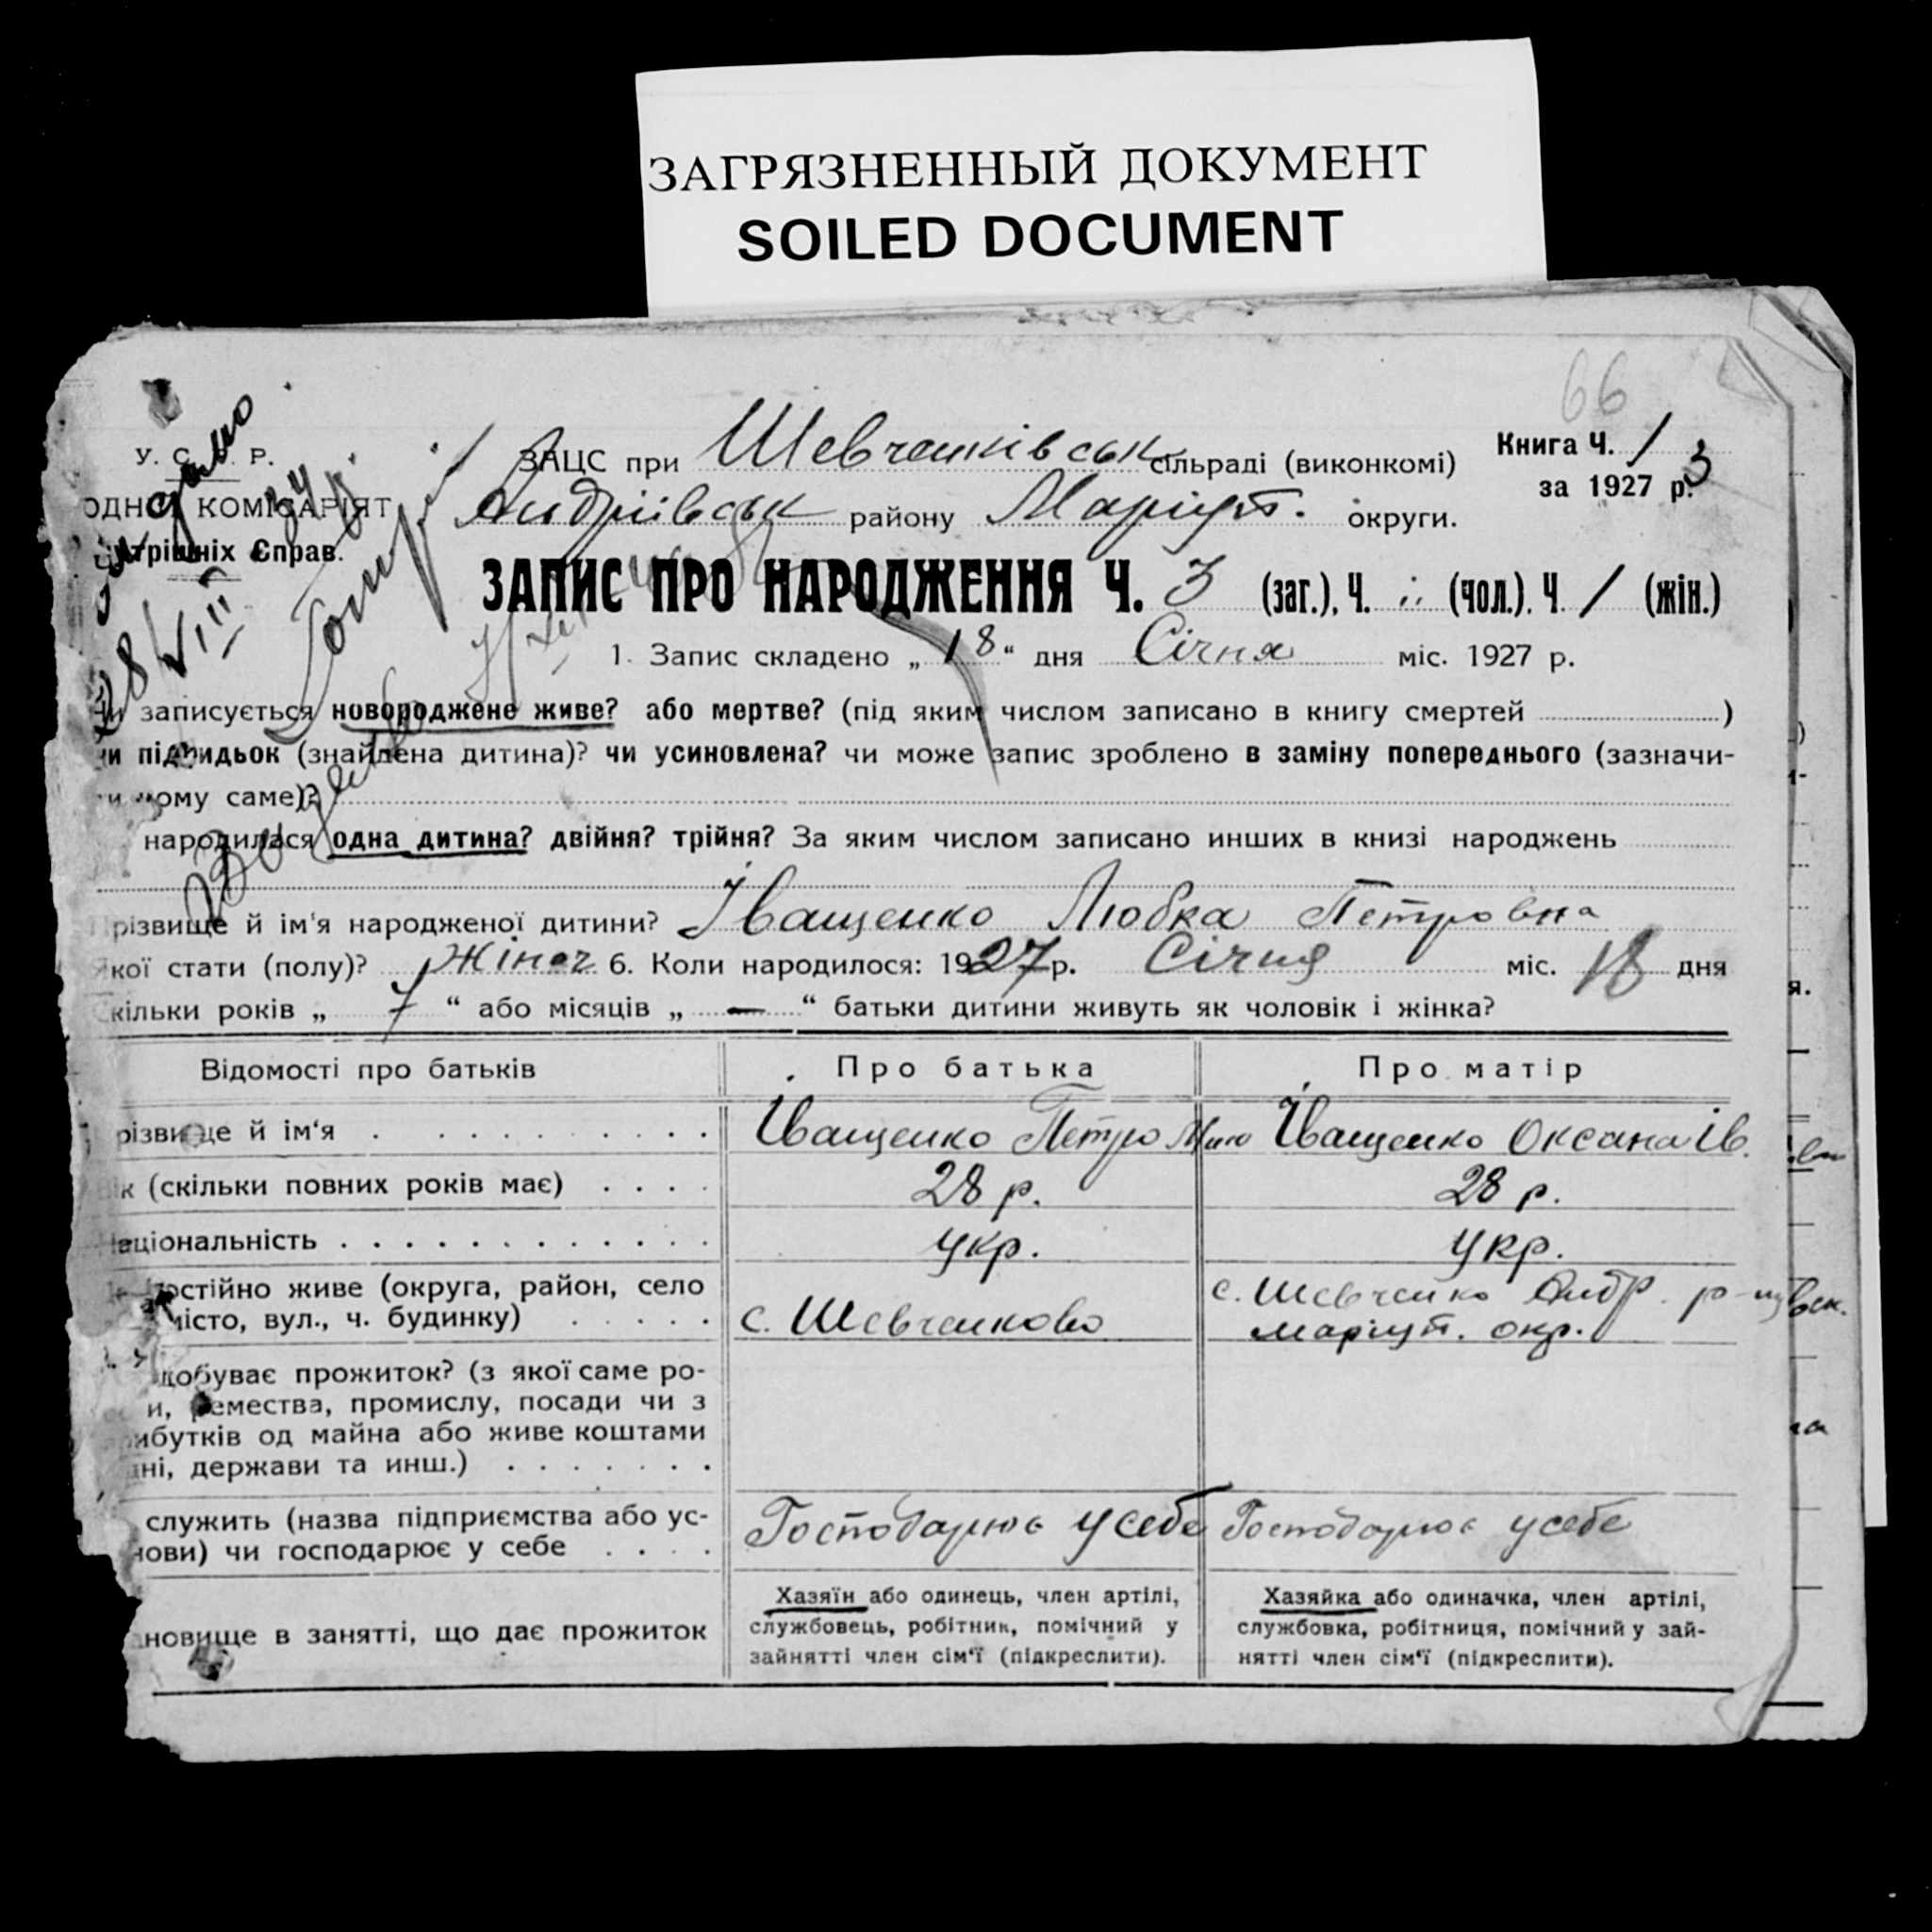 ЗАГРЯЗНЕННЫЙ ДОКУМЕНТ
SOILED DOCUMENT
66
У. С. Р. Р.
ОДНО КОМІСАРІЯТ
трішніх Справ.
ЗАЦС при Шевченківськ сільраді (виконкомі)
Книга Ч. 1
за 1927 р. 3
Андріївськ району Маріуп. округи.
28/VIII
ЗАПИС ПРО НАРОДЖЕННЯ Ч. 3 (заг.), Ч. (чол.), Ч. 1 (жін.)
1. Запис складено „18“ дня Січня міс. 1927 р.
записується новороджене живе? або мертве? (під яким числом записано в книгу смертей )
чи підкидьок (знайдена дитина)? чи усиновлена? чи може запис зроблено в заміну попереднього (зазначи-
чому саме)?
народилася одна дитина? двійня? трійня? За яким числом записано инших в книзі народжень
різвище й ім'я народженої дитини? Іващенко Любка Петровна
кої стати (полу)? Жіноч. 6. Коли народилося: 1927 р. Січня міс. 18 дня
кільки років „ 7 “ або місяців „ — “ батьки дитини живуть як чоловік і жінка?
Відомості про батьків
Про батька
Про матір
різвище й ім'я
Іващенко Петро
Іващенко Оксана Ів.
ік (скільки повних років має)
28 р.
28 р.
аціональність
укр.
укр.
остійно живе (округа, район, село
місто, вул., ч. будинку)
с. Шевченково
с. Шевченко Андр.
маріуп. окр.
добуває прожиток? (з якої саме ро-
и, ремества, промислу, посади чи з
рибутків од майна або живе коштами
дні, держави та инш.)
служить (назва підприємства або ус-
нови) чи господарює у себе
Господарює у себе
Господарює у себе
новище в занятті, що дає прожиток
Хазяїн або одинець, член артілі,
службовець, робітник, помічний у
зайнятті член сім'ї (підкреслити).
Хазяйка або одиначка, член артілі,
службовка, робітниця, помічний у зай-
нятті член сім'ї (підкреслити).